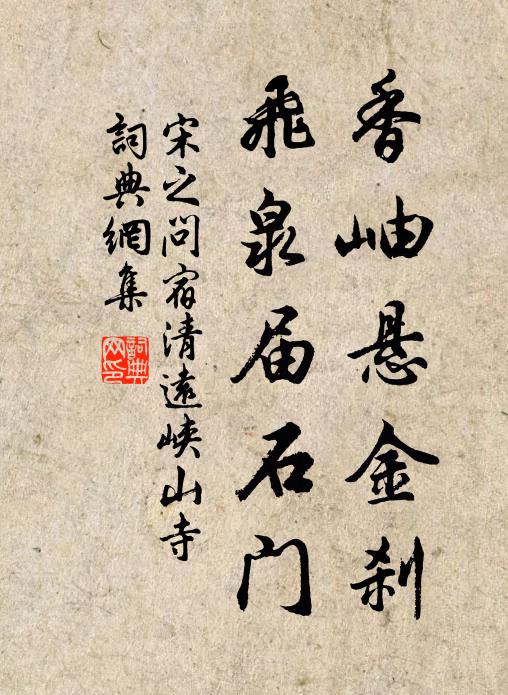 香岫悬金刹
飛泉届石门
宋之问宿清遠峡山寺
詞典網集
詞典网印